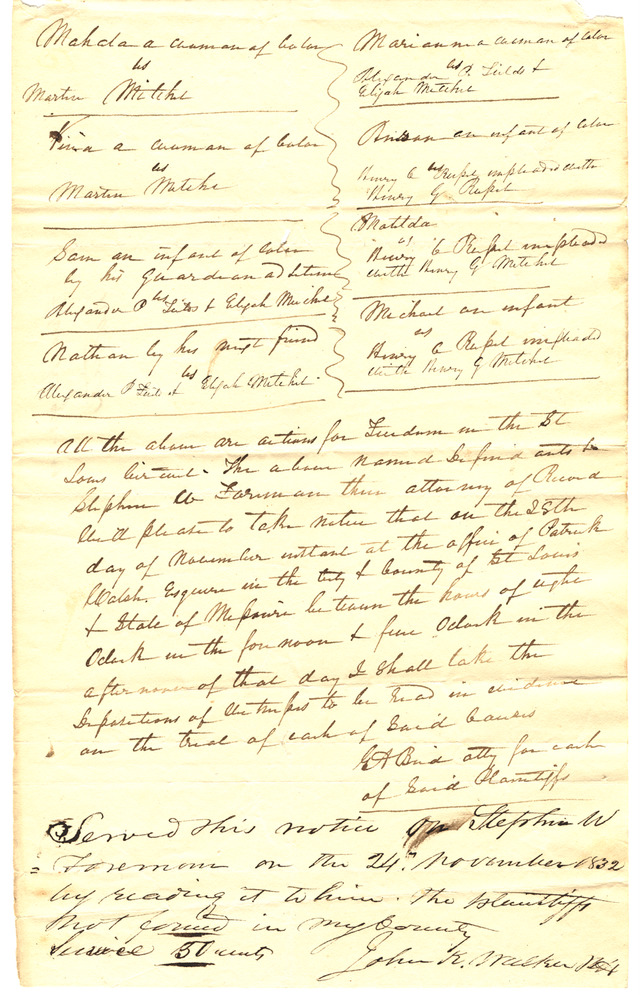 Mahala a woman of Color
vs
Martin Mitchel
Vina a woman of Color
vs
Martin Mitchel
Sam an infant of Color
by his Guardian ad litem
vs
Alexander P Fields & Elijah Mitchel
Nathan by his next friend
vs
Alexander P Fields & Elijah Mitchel
Marianna a woman of Color
vs
Alexander P. Fields &
Elijah Mitchel
an infant of Color
vs
Henry G Russel impleaded with
Henry G. Russel
Matilda
vs
Henry C Russel impleaded
with Henry G Mitchel
Michael an infant
vs
Henry C Russel impleaded
with Henry G Mitchel
All the above are actions for Freedom in the St
Louis Circuit. The above named Defendants &
Stephen W Foreman their attorney of Record
Will please to take notice that on the 25th
day of November instant at the office of Patrick
Walsh. Esquire in the City & County of St Louis
& State of Missouri between the hours of eight
Oclock in the forenoon & five Oclock in the
afternoon of that day I Shall take the
Depositions of Witnesses to be Read in evidence
on the trial of each of Said Causes
Bird atty for each
of Said Plaintiffs
Served this notice on Stephen W
Foreman on the 24th November 1832
by reading it to him. The plaintiffs
not found in my County
Service 50 cents
John K. Walker